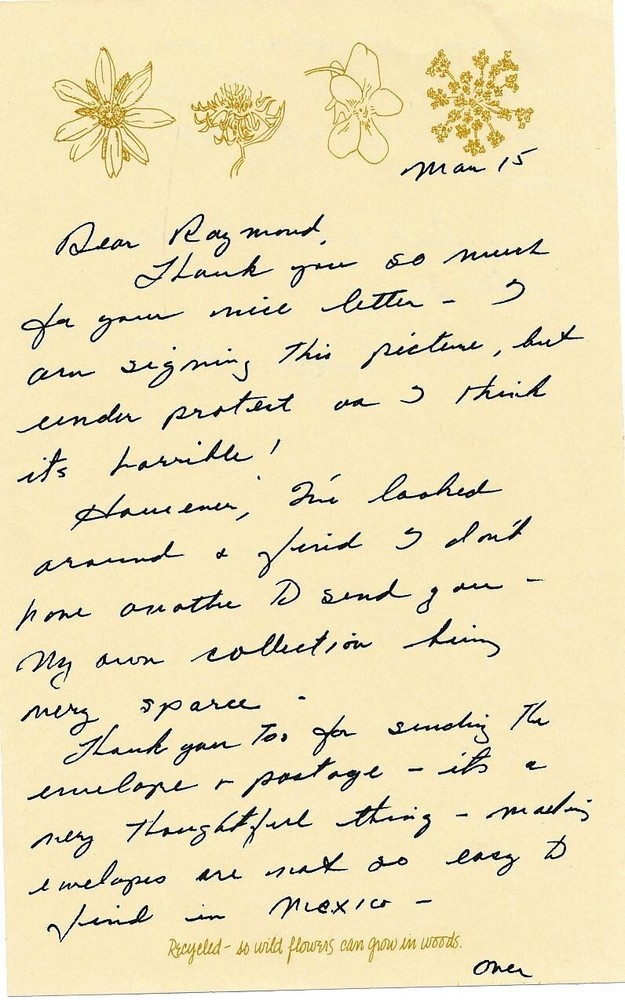 Mar 15
Dear Raymond,
Thank you so much
for your nice letter - I
am signing this picture, but
under protest as I think
it's horrible!
However, I've looked
around & find I don't
have another to send you -
My own collection being
very sparce -
Thank you too for sending the
envelope & postage - it's a
very thoughtful thing - mailing
envelopes are not so easy to
find in Mexico -
Recycled - so wild flowers can grow in woods.
over